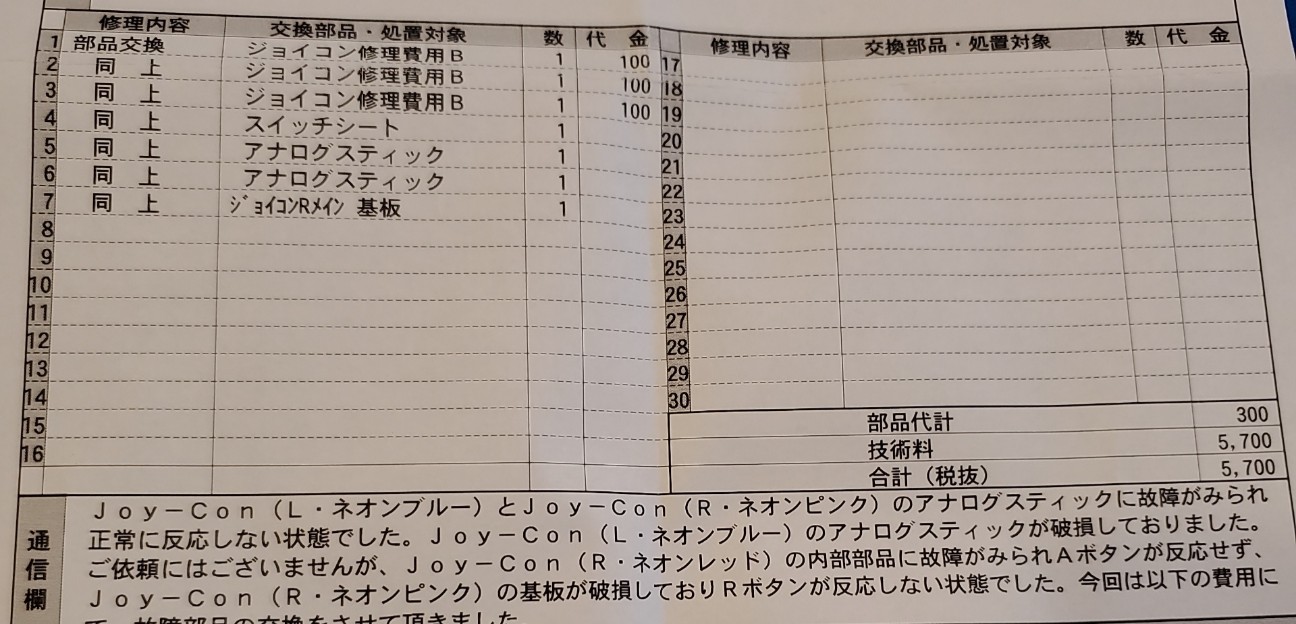 修理内容 交換部品・処置対象 数 代 金 修理内容 交換部品・処置対象 数 代 金
1 部品交換 ジョイコン修理費用B 1 100 17
2 同 上 ジョイコン修理費用B 1 100 18
3 同 上 ジョイコン修理費用B 1 100 19
4 同 上 スイッチシート 1 20
5 同 上 アナログスティック 1 21
6 同 上 アナログスティック 1 22
7 同 上 ジョイコンRメイン 基板 1 23
8 24
9 25
10 26
11 27
12 28
13 29
14 30
15 部品代計 300
16 技術料 5,700
合計（税抜） 5,700
通信欄
Joy－Con（L・ネオンブルー）とJoy－Con（R・ネオンピンク）のアナログスティックに故障がみられ
正常に反応しない状態でした。Joy－Con（L・ネオンブルー）のアナログスティックが破損しておりました。
ご依頼にはございませんが、Joy－Con（R・ネオンレッド）の内部部品に故障がみられAボタンが反応せず、
Joy－Con（R・ネオンピンク）の基板が破損しておりRボタンが反応しない状態でした。今回は以下の費用に
て、故障部品の交換をさせて頂きました